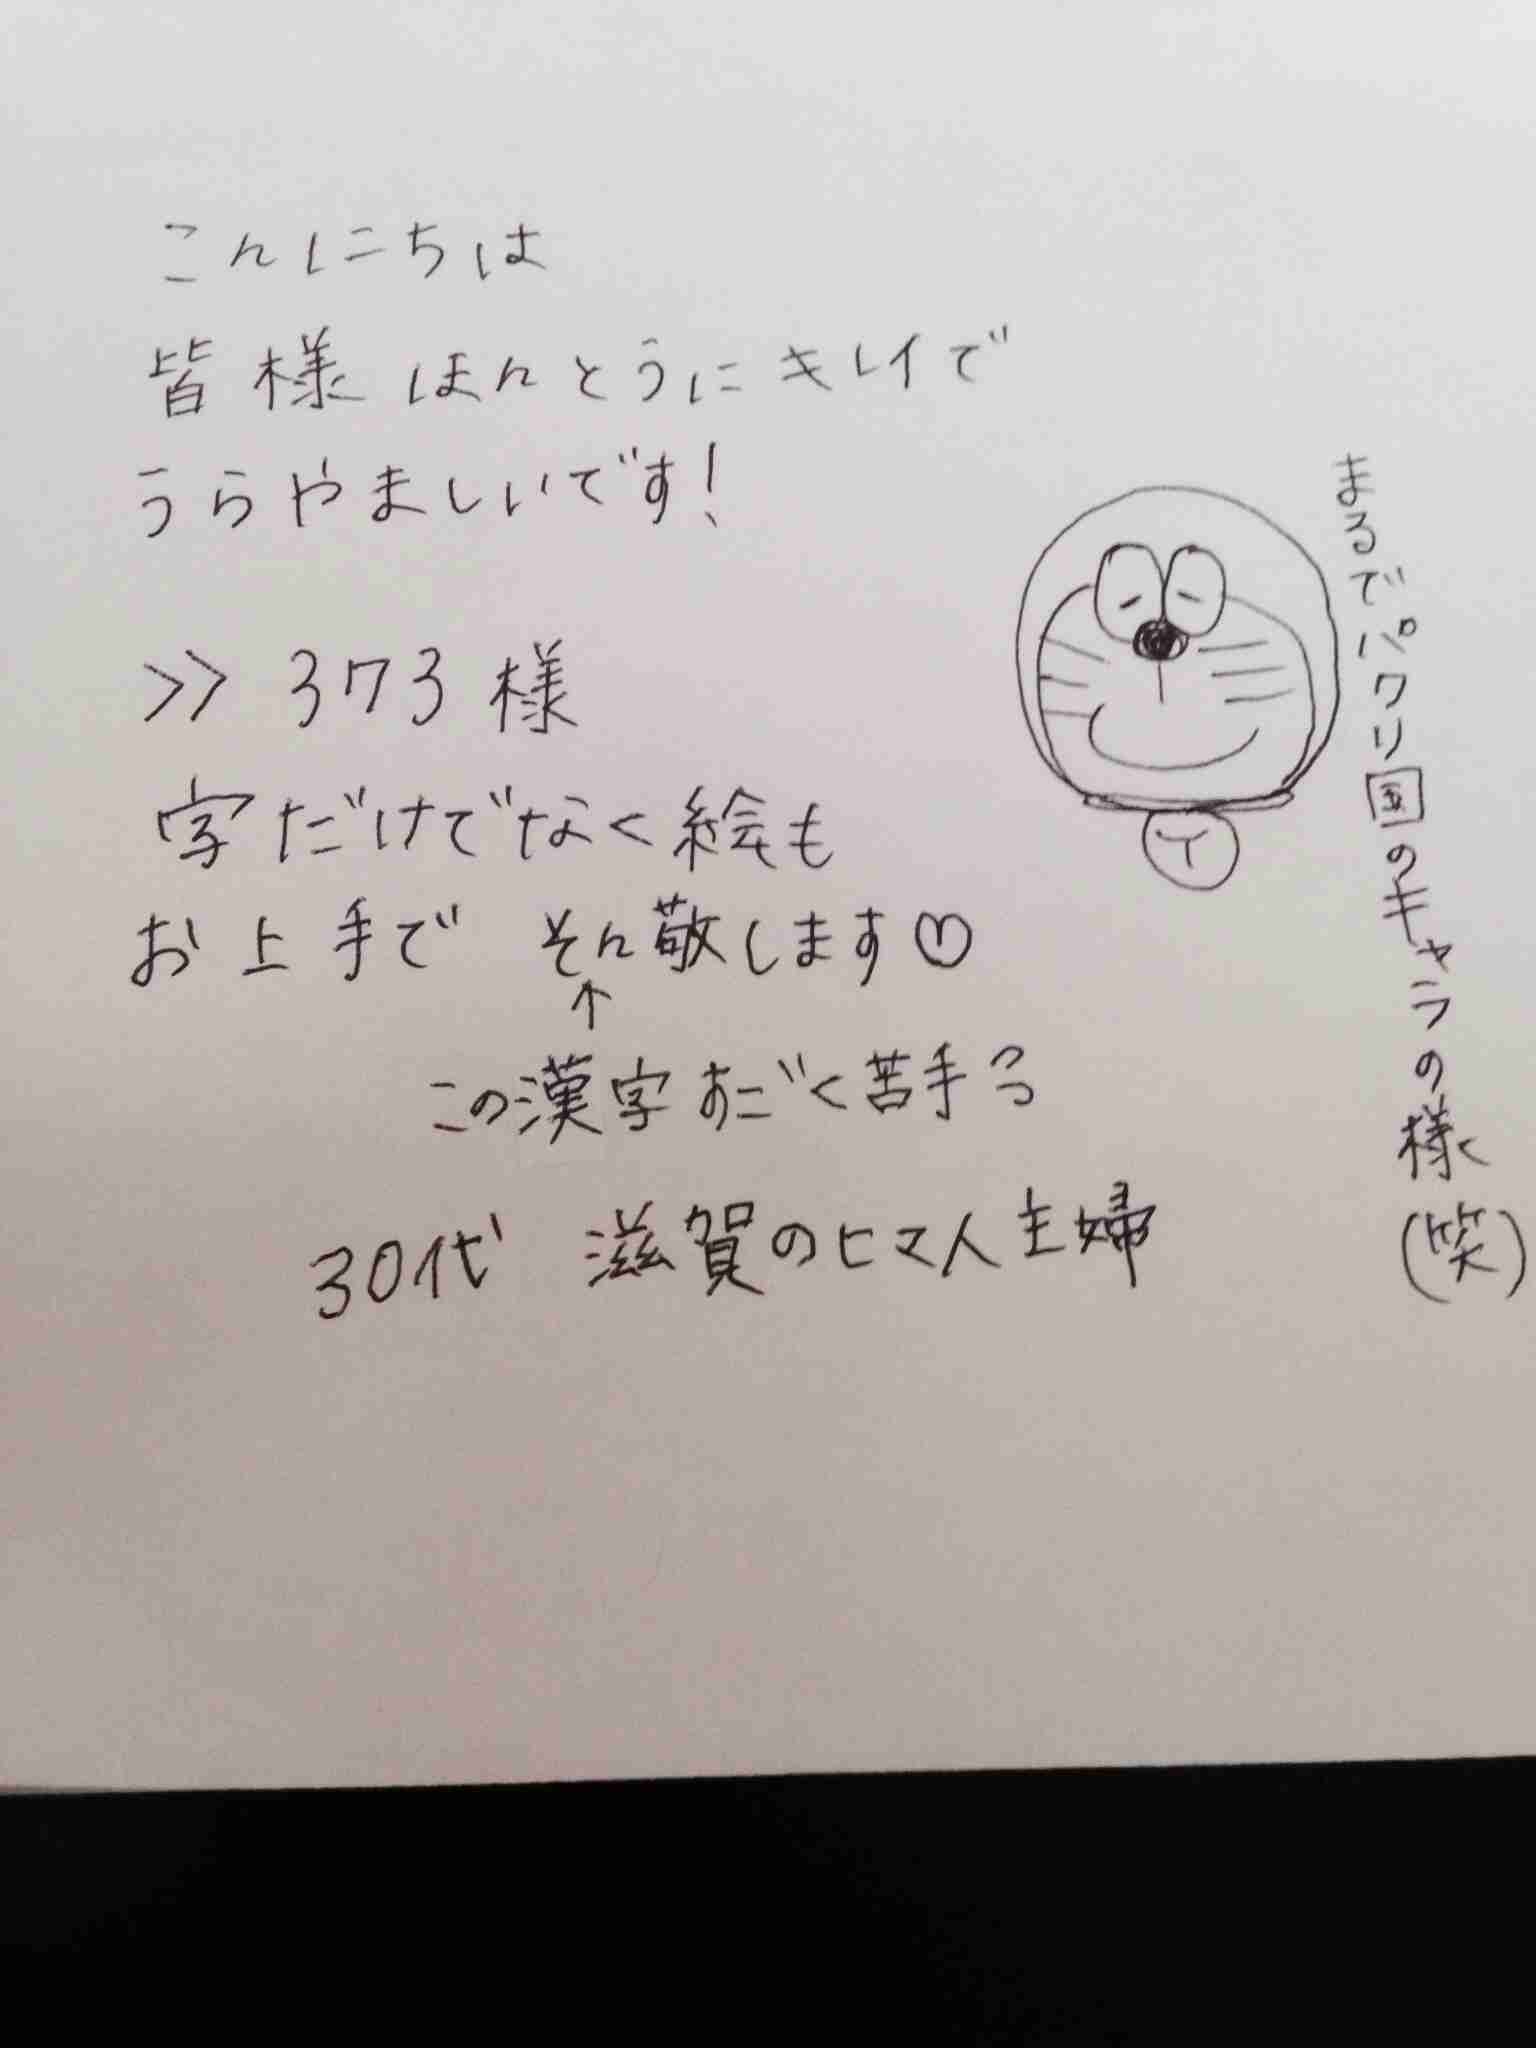 こんにちは
皆様ほんとうにキレイで
うらやましいです!
>>373様
字だけでなく絵も
お上手で そん敬します♡
↑
この漢字すごく苦手
30代 滋賀のヒマ人主婦
まるでパクリ国のキャラの様(笑)